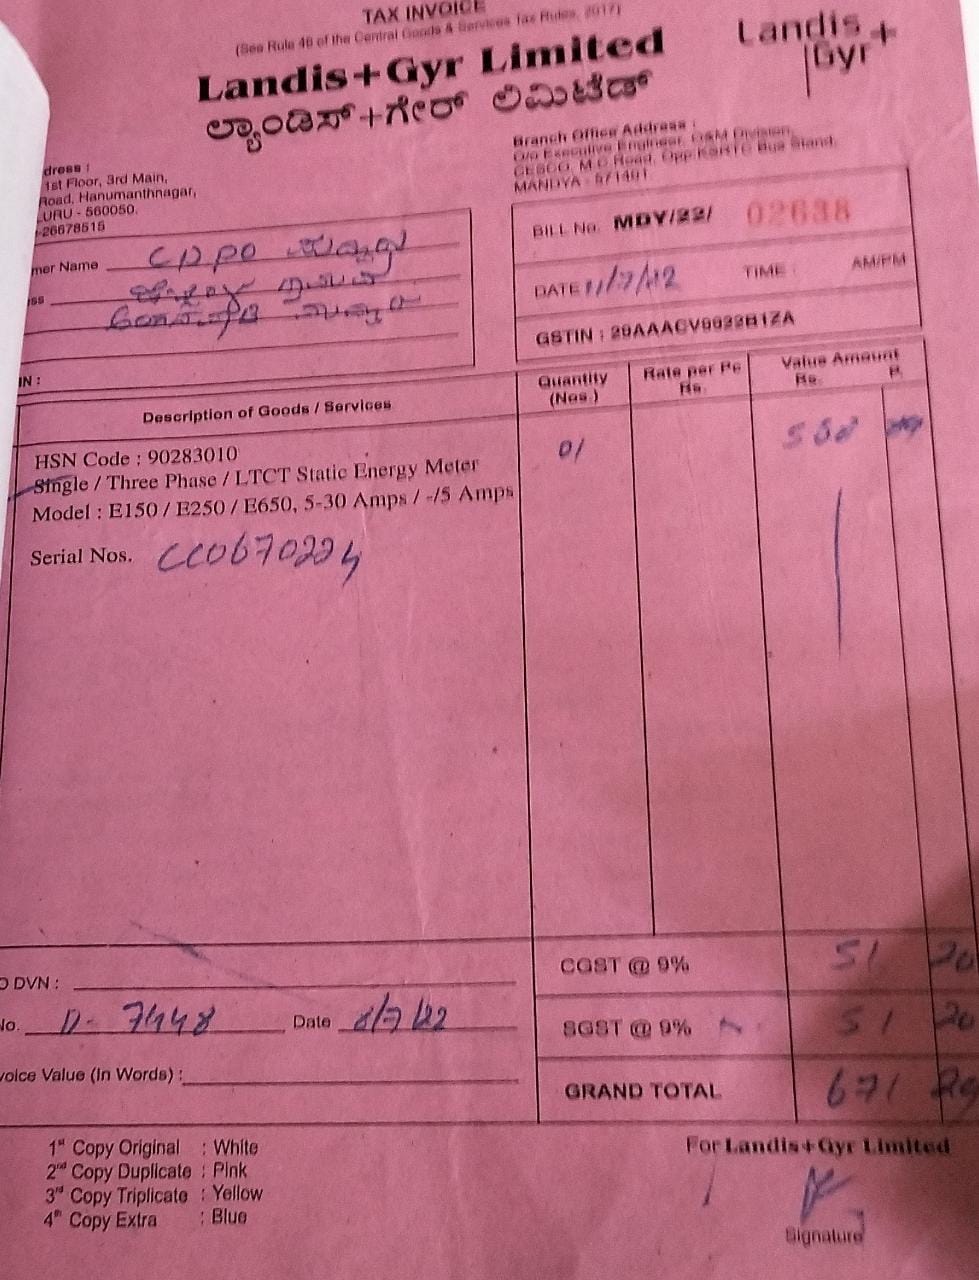 TAX INVOICE
(See Rule 46 of the Central Goods & Services Tax Rules, 2017)
Landis+Gyr Limited
ಲ್ಯಾಂಡಿಸ್+ಗೇರ್ ಲಿಮಿಟೆಡ್
Landis
Gyr+
dress :
1st Floor, 3rd Main,
Road, Hanumanthnagar,
URU - 560050.
-26678515
Branch Office Address :
O/o Executive Engineer, O&M Division,
CESCO, M.C Road, Opp KSRTC Bus Stand,
MANDYA - 571401
mer Name CDPO
ess
IN :
BILL No. MDY/22/ 02638
DATE 11/7/22 TIME : AM/PM
GSTIN : 29AAACV9922B1ZA
Description of Goods / Services
Quantity (Nos.)
Rate per Pc Rs.
Value Amount
Rs. P.
HSN Code : 90283010 01
Single / Three Phase / LTCT Static Energy Meter
Model : E150 / E250 / E650, 5-30 Amps / -/5 Amps
Serial Nos. CC0670224
O DVN :
No. D- 7448 Date 8/7/22
voice Value (In Words) :
CGST @ 9% 51 20
SGST @ 9% 51 20
GRAND TOTAL 671
1st Copy Original : White
2nd Copy Duplicate : Pink
3rd Copy Triplicate : Yellow
4th Copy Extra : Blue
For Landis+Gyr Limited
Signature